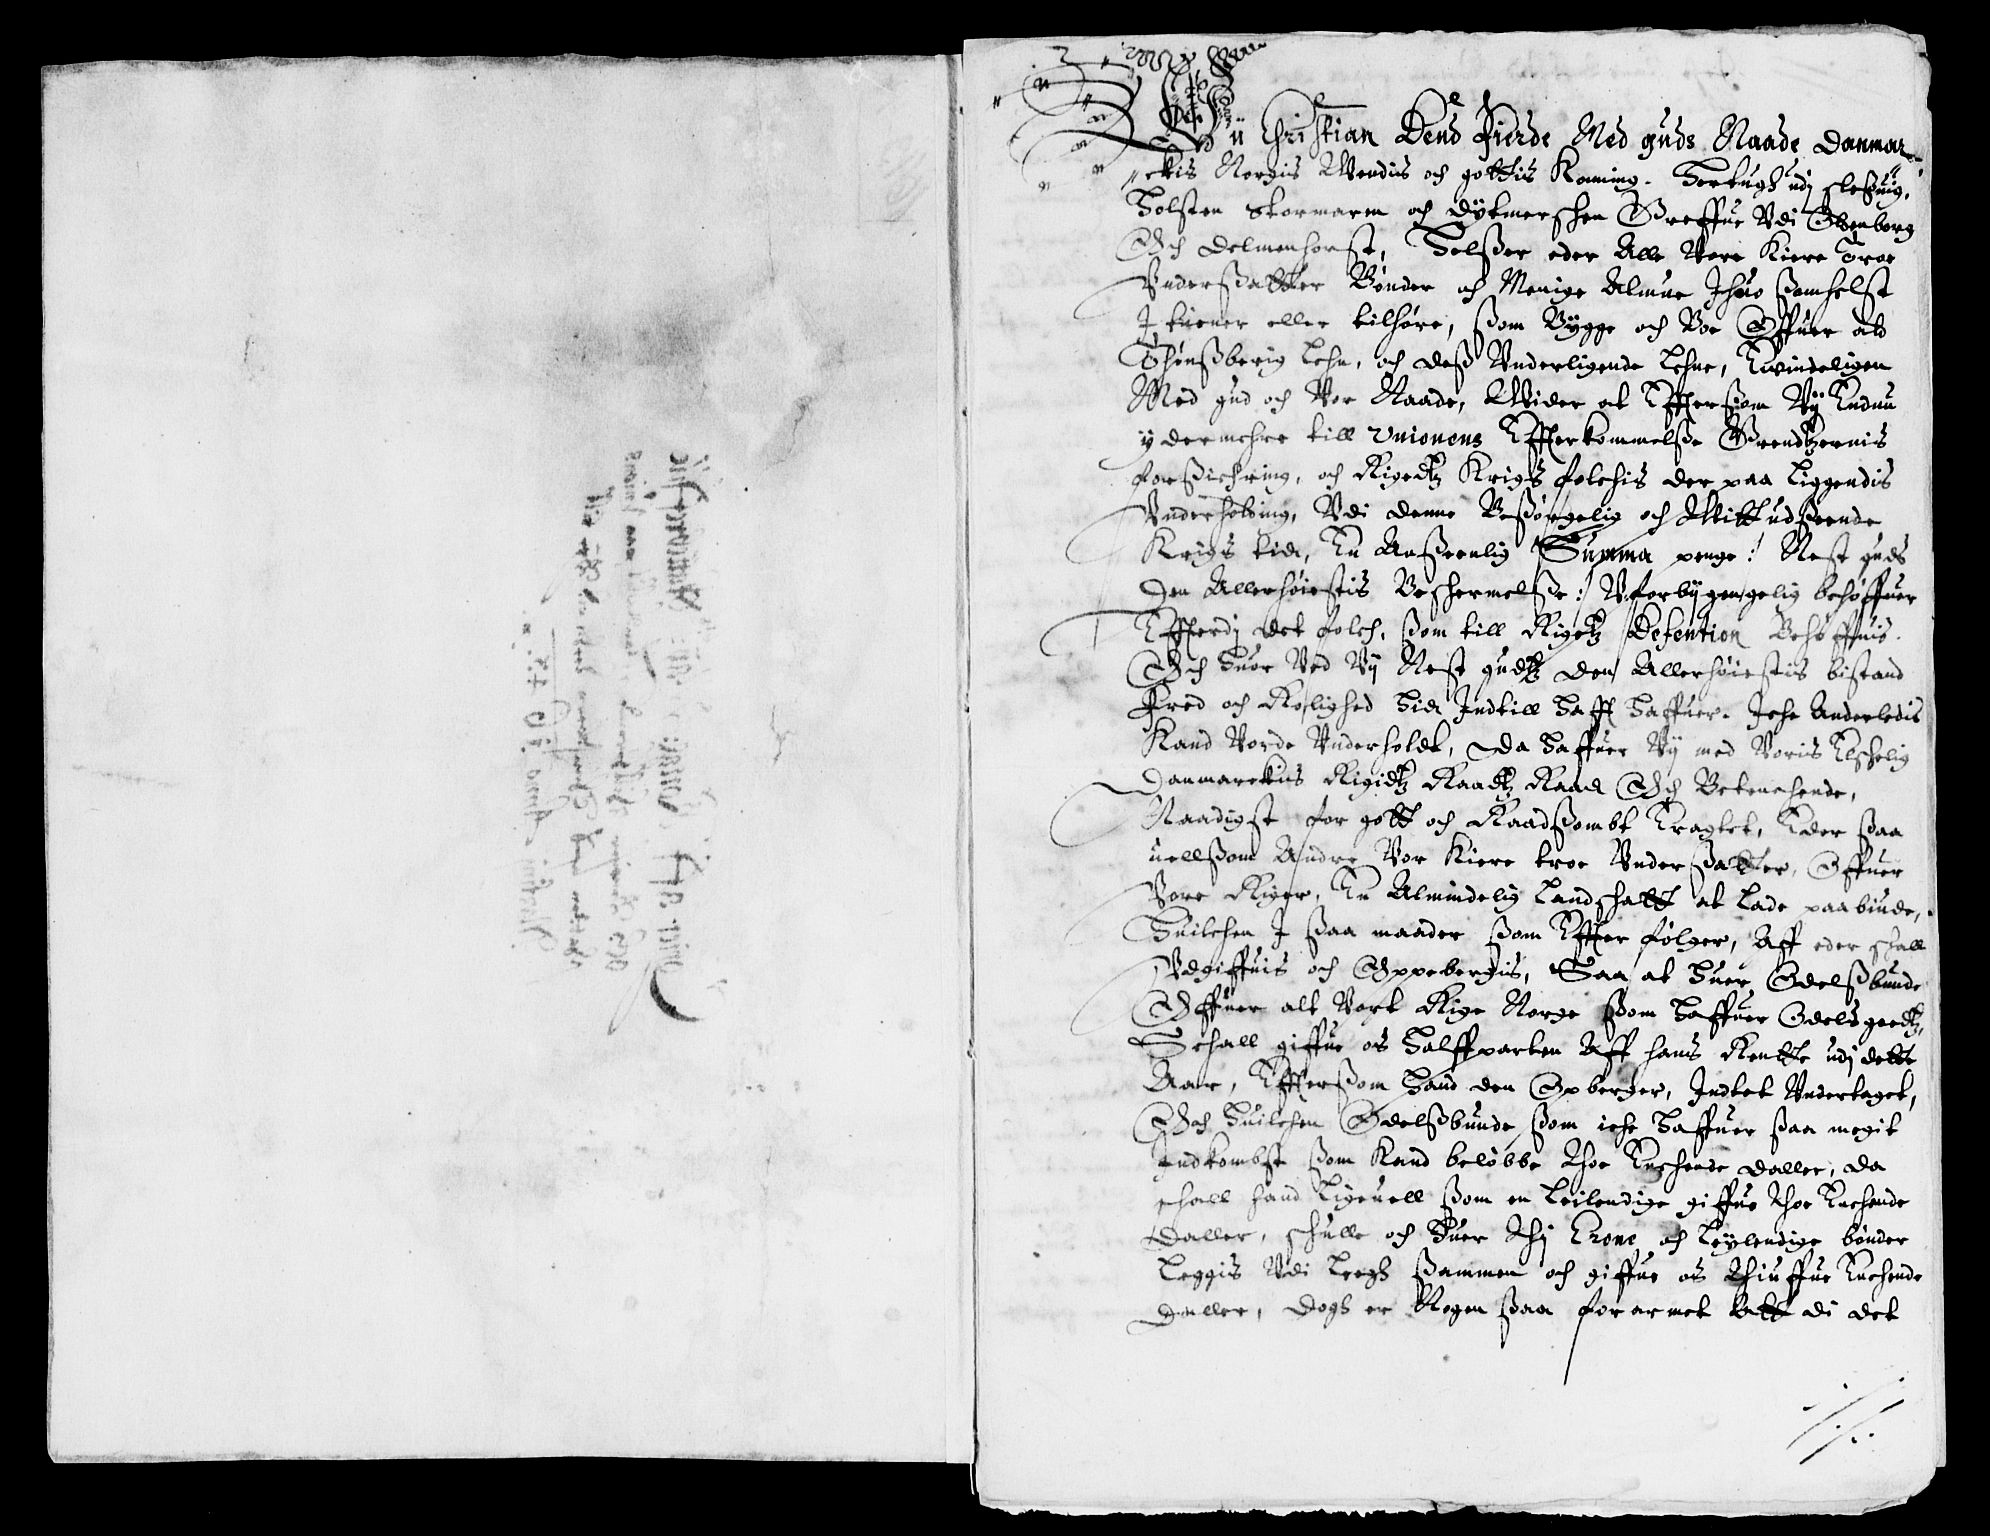 Wii Christian Dend Fierde Med guds Naade Danmar-
ckis Norgis Wendis och gottis Konning. Hertugh udj Sleßuig,
Holsten Stormarn och Dytmerschen Greffue Vdi Oldenborg
Och Delmenhorst, Helßer eder Alle Vore Kiere Troe
Vnderßatter Bønder och Menige Almue Ihuo ßomhelst
I tiener eller tilhøre, ßom Bygge och Boe Offuer alt
Thønßberig Lehn, och deß Vnderligende Lehne, Kwindeligen
Med gud och Vor Naade, Wider at Efftersom Vy Endnu
ydermehre till Unionens Effterkommelße Grendtzernis
forßichring, och Rigedtz Krigs folchis der paa Liggendis
Vnderholding, Vdi denne Besørgelig och Witt udßeende
Krigs tide, En Anßeenlig Summa penge :/ Nest guds
den Allerhøiestis Beschermelße :/ Vforbygengelig behøffuer
Effterdj det folch, ßom till Rigetz Defention Behøffuis.
Och Huor Ved Vy Nest gudtz den Allerhøiestis bistand
Fred och Rolighed Hid Indtill Hafft Haffuer. Iche Anderledis
Kand Vorde Vnderholdt, Da Haffuer Vy med Voris Elschelig
Danmarckis Rigidtz Raadtz Raad Och Betenchende,
Naadigst for gott och Raadßombt Eragtet, Eder ßaa
uellßom Andre Vor Kiere troe Vnderßatter, Offuer
Vore Riger, En Almindelig Landschatt at Lade paabiude,
Huilchen I ßaa maader ßom Effter følger, Aff eder schall
Vdgiffuis och Oppebergis, Saa at Huer Odelßbunde
Offuer alt Vort Rige Norge ßom Haffuer Odelsgoedtz,
Schall giffue os Halffparten Aff hans Rentte udj dette
Aar, Efftersom Hand den Opberger, Indtet Vndertaget,
Och Huilchen Odelßbunde ßom iche Haffuer ßaa megit
Indkombst ßom Kand beløbbe thoe Enchende daller, da
schall hand Ligeuell ßom en Leilendige giffue thoe Enchende
Daller, schulle och Huer thj Crone och Leylendige bønder
Leggis Vdi Leegh ßammen och giffue os thiuffue Enchende
Daller, Dogh er Nogen ßaa forarmet datt di det